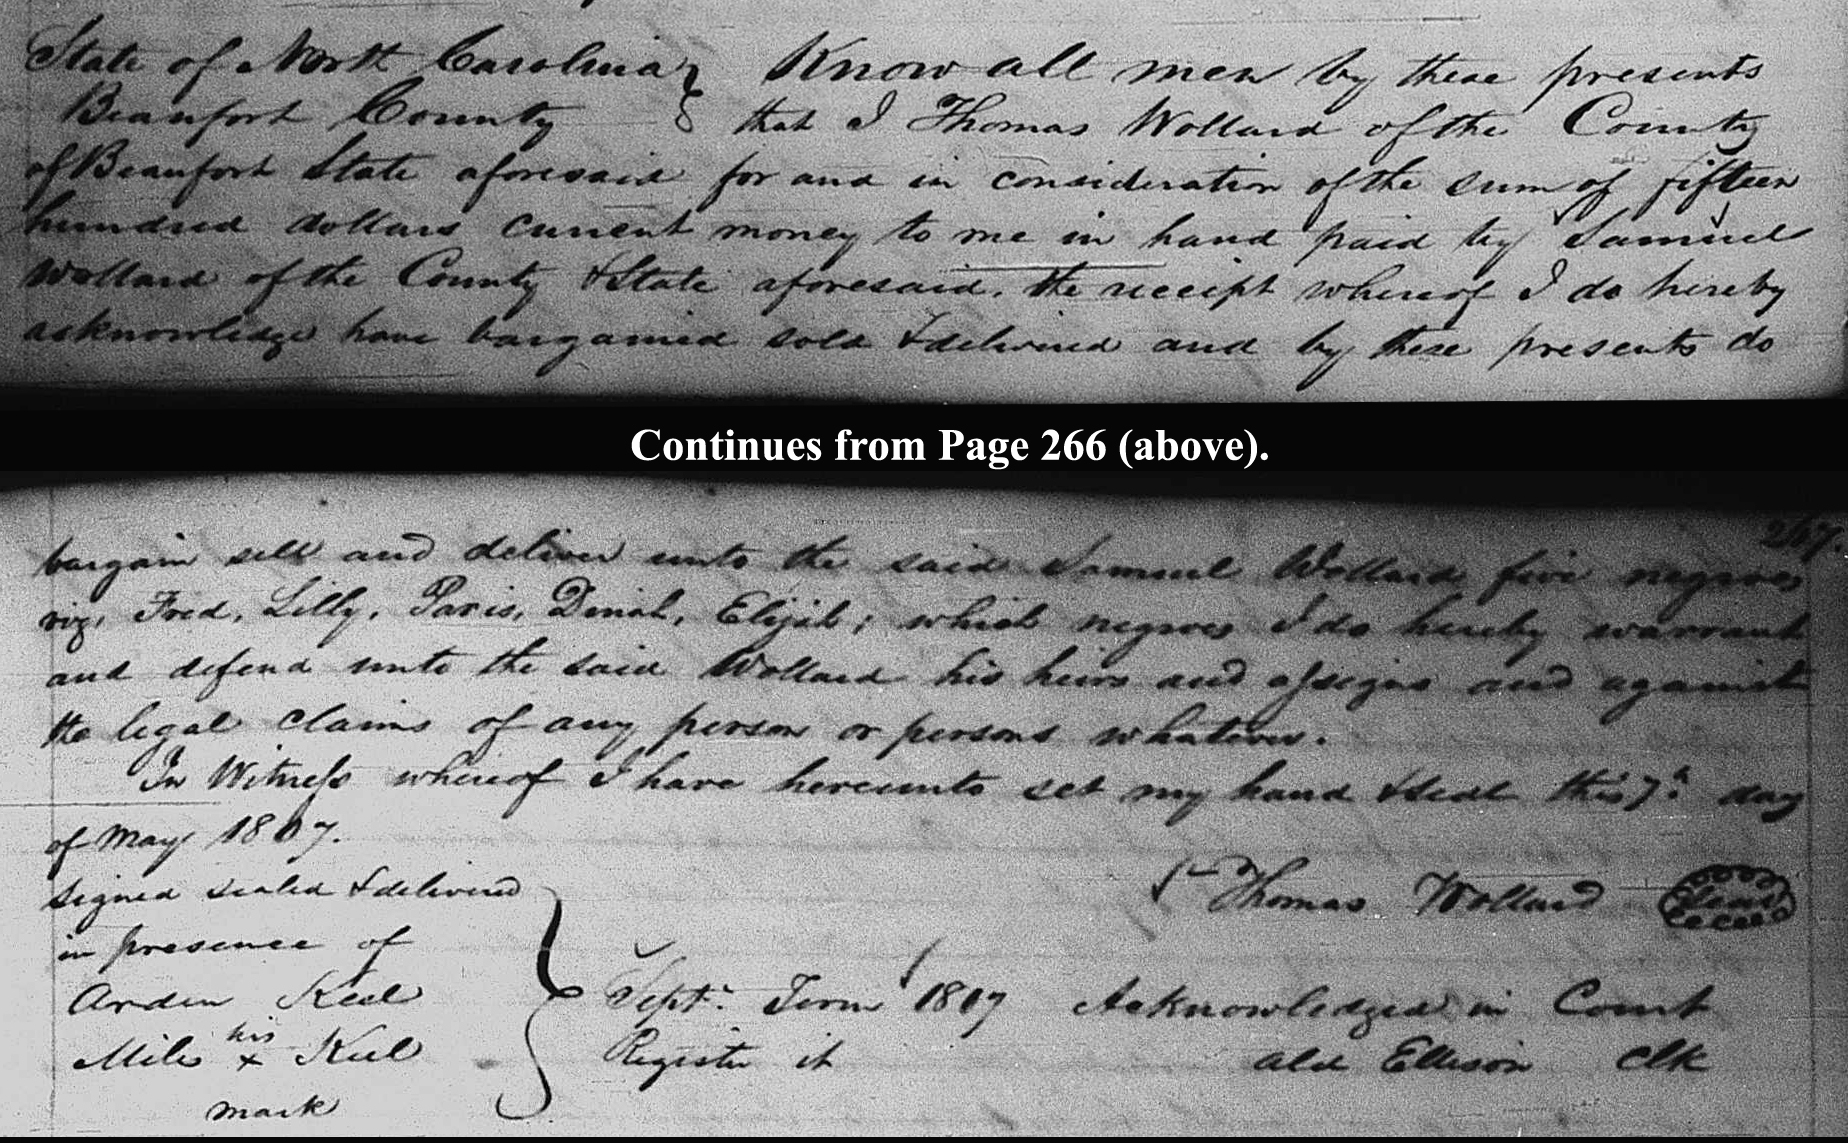 State of North Carolina } Know all men by these presents
Beaufort County } that I Thomas Wollard of the County
of Beaufort State aforesaid for and in consideration of the sum of fifteen
hundred dollars current money to me in hand paid by Samuel
Wollard of the County & State aforesaid, the receipt whereof I do hereby
acknowledge have bargained sold & delivered and by these presents do
Continues from Page 266 (above).
267.
bargain sell and deliver unto the said Samuel Wollard five negroes
viz, Fred, Lilly, Paris, Dinah, Elijah; which negroes I do hereby warrant
and defend unto the said Wollard his heirs and assigns and against
the legal claims of any person or persons whatever.
In Witness whereof I have hereunto set my hand & seal this 7th day
of May 1807.
signed sealed & delivered
Thomas Wollard Seal
in presence of
Arden Keel } Septr. Term 1807 Acknowledged in Court
his
Miles x Keel Register it Ald Ellison Clk
mark